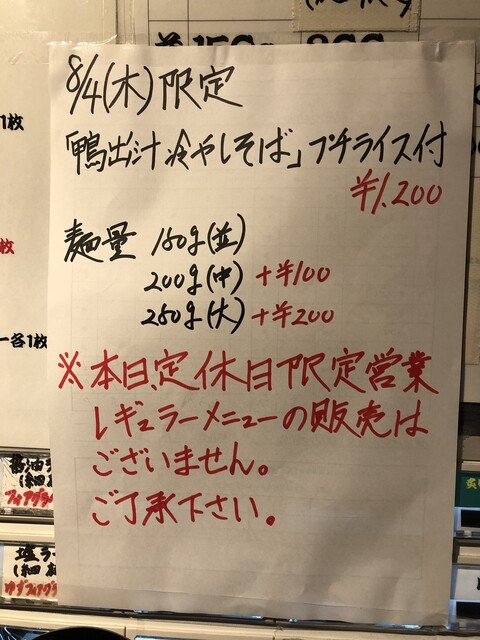 8/4(木)限定
「鴨出汁冷やしそば」プチライス付
¥1,200
麺量 150g(並)
200g(中)+¥100
250g(大)+¥200
※本日、定休日限定営業
レギュラーメニューの販売は
ございません。
ご了承下さい。
1枚
枚
各1枚